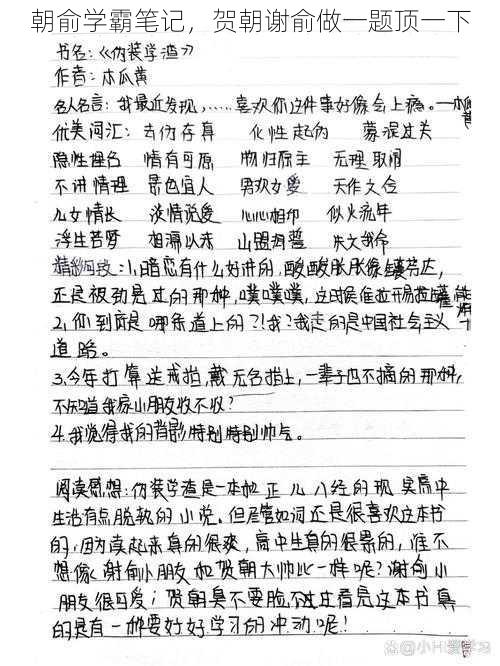 朝俞学霸笔记，贺朝谢俞做一题顶一下
书名：《伪装学渣》
作者：木瓜黄
名人名言：我最近发现,……喜欢你这件事好像会上瘾。—木瓜黄
优美词汇：去伪存真 化性起伪 蒙混过关
隐性埋名 情有可原 物归原主 无理取闹
不讲情理 景色宜人 男欢女爱 天作之合
儿女情长 谈情说爱 心心相印 似火流年
浮生若梦 相濡以沫 山盟海誓
精彩句段：1,暗恋有什么好讲的,酸酸胀胀像镇芬达,
还是被动晃过的那种,噗噗噗,这时候谁拉开易拉罐谁
2,你到底是哪条道上的?!我?我走的是中国社会主义
道路。
3.今年打算送戒指,戴无名指上,一辈子也不摘的那种,
不知道我家小朋友收不收?
4.我觉得我的背影特别特别帅气。
阅读感想：伪装学渣是一本正儿八经的现实高中
生活有点脱轨的小说。但尽管如词还是很喜欢这本书
的,因为读起来真的很爽,高中生真的很累的,谁不
想像谢俞小朋友和贺朝大帅比一样呢?谢俞小
朋友很可爱；贺朝臭不要脸不过过看完这本书真
的是有一种要好好学习的冲动呢!